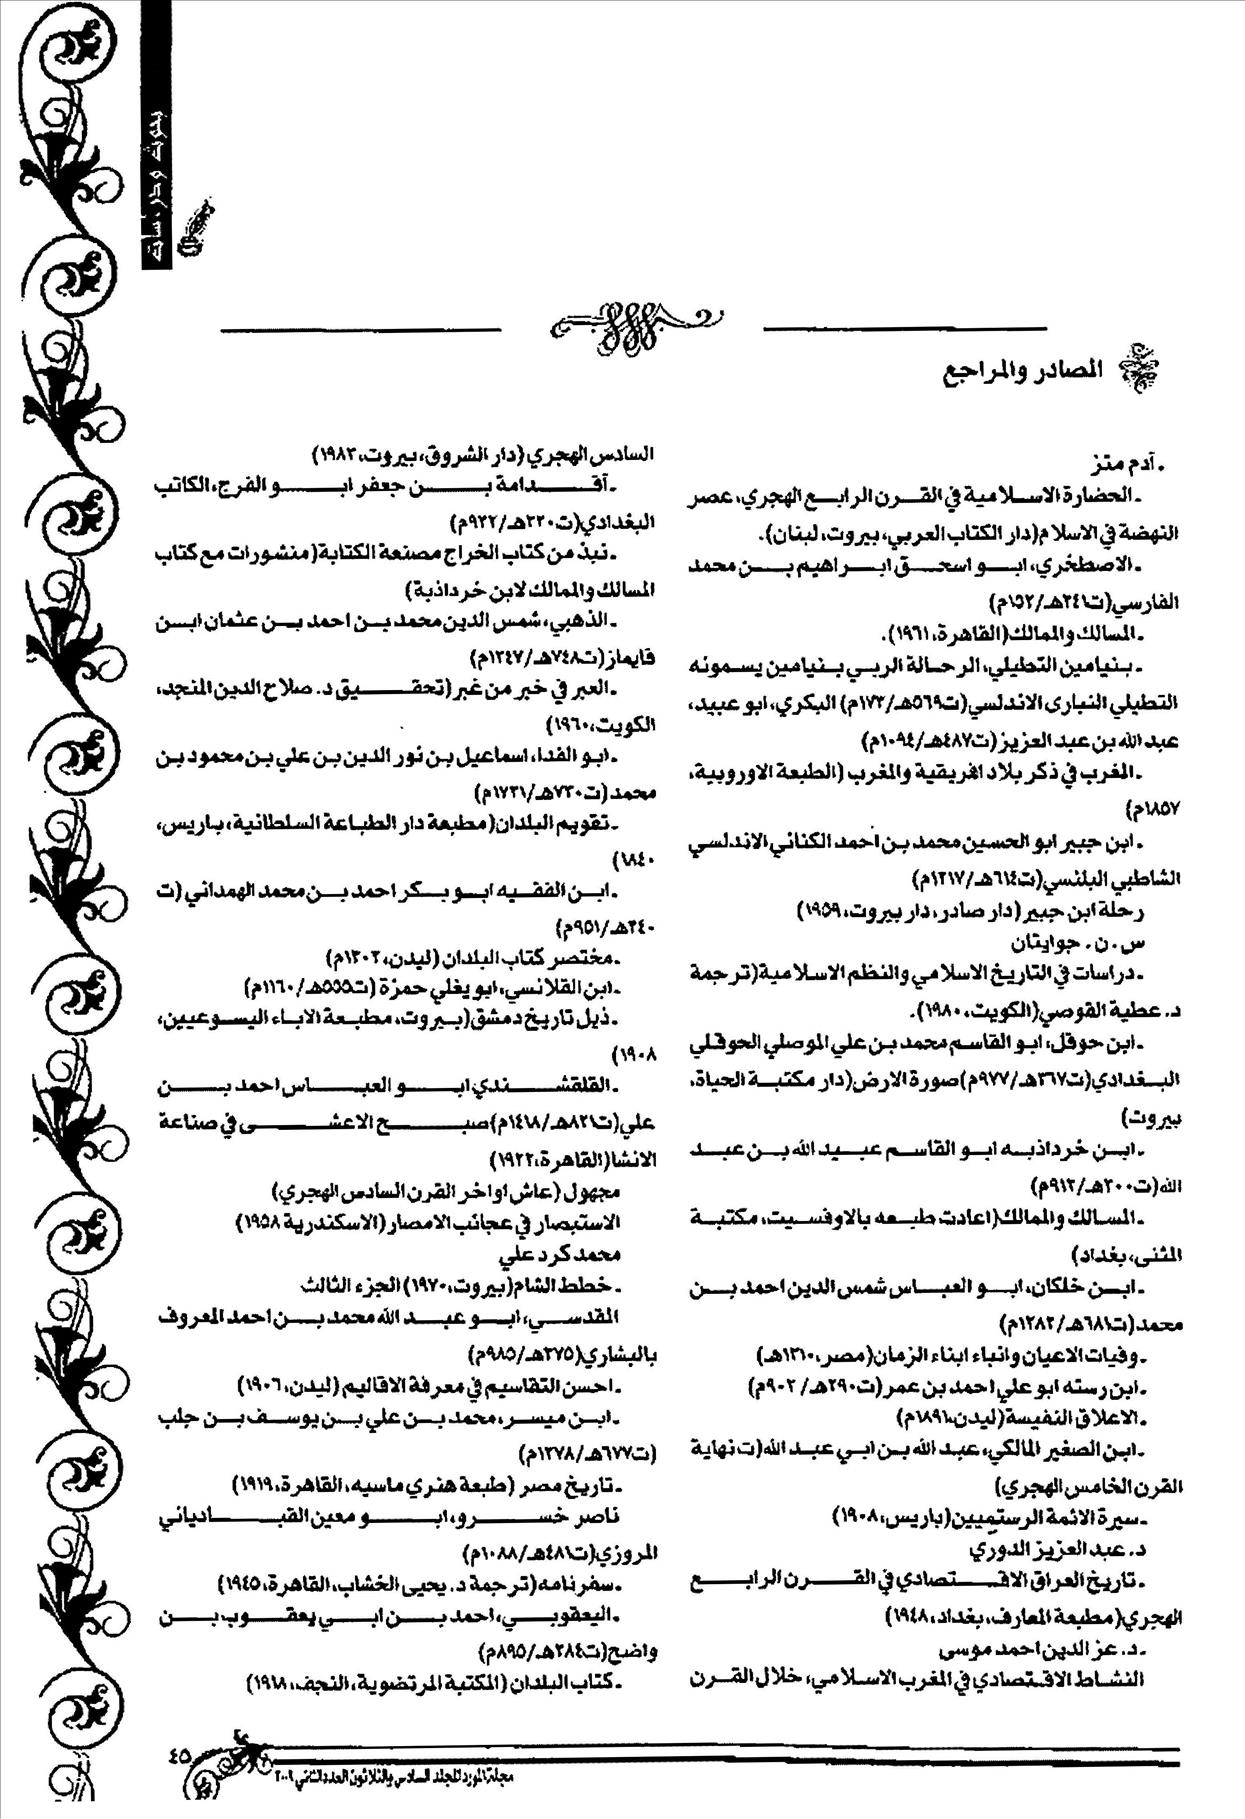 بحوث ودراسات
المصادر والمراجع
ـ آدم متز
ـ الحضارة الاسلامية في القرن الرابع الهجري، عصر
النهضة في الاسلام(دار الكتاب العربي، بيروت، لبنان).
ـ الاصطخري، ابو اسحق ابراهيم بن محمد
الفارسي(ت٣٤١هـ/١٥٢م)
ـ المسالك والممالك(القاهرة، ١٩٦١).
ـ بنيامين التطيلي، الرحالة الربي بنيامين يسمونه
التطيلي النباري الاندلسي(ت٥٦٩هـ/١٧٣م) البكري، ابو عبيد،
عبد الله بن عبد العزيز(ت٤٨٧هـ/١٠٩٤م)
ـ المغرب في ذكر بلاد افريقية والمغرب (الطبعة الاوروبية،
١٨٥٧م)
ـ ابن جبير ابو الحسين محمد بن احمد الكناني الاندلسي
الشاطبي البلنسي(ت٦١٤هـ/١٢١٧م)
رحلة ابن جبير(دار صادر، دار بيروت، ١٩٥٩)
س. ن. جوايتان
ـ دراسات في التاريخ الاسلامي والنظم الاسلامية(ترجمة
د. عطية القوصي(الكويت، ١٩٨٠).
ـ ابن حوقل، ابو القاسم محمد بن علي الموصلي الحوقلي
البغدادي(ت٣٦٧هـ/٩٧٧م)صورة الارض(دار مكتبة الحياة،
بيروت)
ـ ابن خرداذبه ابو القاسم عبيد الله بن عبد
الله(ت٣٠٠هـ/٩١٢م)
ـ المسالك والممالك(اعادت طبعه بالاوفسيت، مكتبة
المثنى، بغداد)
ـ ابن خلكان، ابو العباس شمس الدين احمد بن
محمد(ت٦٨١هـ/١٢٨٢م)
ـ وفيات الاعيان وانباء ابناء الزمان(مصر، ١٣١٠هـ)
ـ ابن رسته ابو علي احمد بن عمر(ت٢٩٠هـ/٩٠٢م)
ـ الاعلاق النفيسة(ليدن، ١٨٩١م)
ـ ابن الصغير المالكي، عبد الله بن ابي عبد الله(ت نهاية
القرن الخامس الهجري)
ـ سيرة الائمة الرستميين(باريس، ١٩٠٨)
د. عبد العزيز الدوري
ـ تاريخ العراق الاقتصادي في القرن الرابع
الهجري(مطبعة المعارف، بغداد، ١٩٤٨)
ـ د. عز الدين احمد موسى
النشاط الاقتصادي في المغرب الاسلامي، خلال القرن
السادس الهجري(دار الشروق، بيروت، ١٩٨٣)
ـ آقدامة بن جعفر ابو الفرج، الكاتب
البغدادي(ت٣٢٠هـ/٩٣٢م)
ـ نبذ من كتاب الخراج مصنعة الكتابة(منشورات مع كتاب
المسالك والممالك لابن خرداذبة)
ـ الذهبي، شمس الدين محمد بن احمد بن عثمان ابن
قايماز(ت٧٤٨هـ/١٣٤٧م)
ـ العبر في خبر من غبر(تحقيق د. صلاح الدين المنجد،
الكويت، ١٩٦٠)
ـ ابو الفدا، اسماعيل بن نور الدين بن علي بن محمود بن
محمد(ت٧٣٠هـ/١٧٣١م)
ـ تقويم البلدان(مطبعة دار الطباعة السلطانية، باريس،
١٨٤٠)
ـ ابن الفقيه ابو بكر احمد بن محمد الهمداني (ت
٣٤٠هـ/٩٥١م)
ـ مختصر كتاب البلدان (ليدن، ١٣٠٢م)
ـ ابن القلانسي، ابو يغلي حمزة (ت٥٥٥هـ/١١٦٠م)
ـ ذيل تاريخ دمشق(بيروت، مطبعة الاباء اليسوعيين،
١٩٠٨)
ـ القلقشندي ابو العباس احمد بن
علي(ت٨٢١هـ/١٤١٨م)صبح الاعشى في صناعة
الانشا(القاهرة، ١٩٢٢)
مجهول(عاش اواخر القرن السادس الهجري)
الاستبصار في عجائب الامصار(الاسكندرية ١٩٥٨)
محمد كرد علي
ـ خطط الشام(بيروت، ١٩٧٠) الجزء الثالث
المقدسي، ابو عبد الله محمد بن احمد المعروف
بالبشاري(٣٧٥هـ/٩٨٥م)
ـ احسن التقاسيم في معرفة الاقاليم(ليدن، ١٩٠٦)
ـ ابن ميسر، محمد بن علي بن يوسف بن جلب
(ت٦٧٧هـ/١٢٧٨م)
ـ تاريخ مصر (طبعة هنري ماسيه، القاهرة، ١٩١٩)
ناصر خسرو، ابو معين القبادياني
المروزي(ت٤٨١هـ/١٠٨٨م)
ـ سفرنامه(ترجمة د. يحيى الخشاب، القاهرة، ١٩٤٥)
ـ اليعقوبي، احمد بن ابي يعقوب بن
واضح(ت٢٨٤هـ/٨٩٥م)
ـ كتاب البلدان (المكتبة المرتضوية، النجف، ١٩١٨)
٤٥
مجلة المورد المجلد السادس والثلاثون العدد الثاني ٢٠٠٩